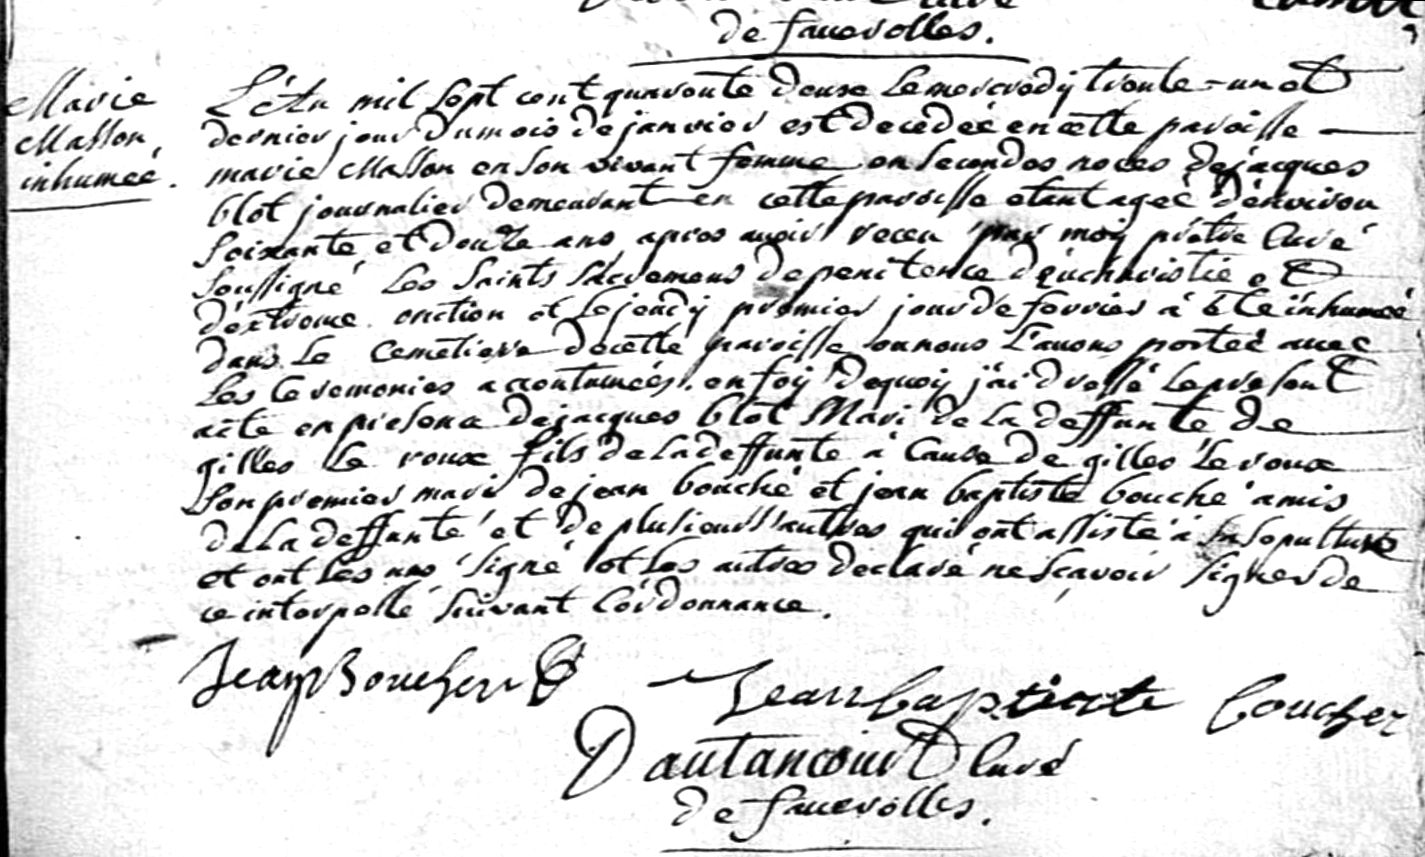 de faverolles.
Marie
Masson
inhumeé.
L'An mil sept cent quarante deuxe le mercredy trente-un et
dernier jour du mois de janvier est decedeé en cette paroisse
marie Masson en son vivant femme en secondes noces de jacques
blot journalier demeurant en cette paroisse etant ageé d'environ
soixante et douze ans apres avoir receu par moy prêtre Curé
soussigné Les Saints Sacremens de penitence d'euchavistie et
d'extreme onction et le jeudy premier jour de fevrier à été inhumeé
dans Le Cemetiere de cette paroisse ou nous L'avons porteé avec
Les Ceremonies accoutumeés. en foy dequoy j'ai dressé Le present
acte en presence de jacques blot Mari de La deffunte de
gilles Le roux fils de La deffunte à Cause de gilles Le roux
son premier mari de jean bouché et jean baptiste bouché amis
de La deffunte et de plusieurs autres qui ont assisté à sa sepulture
et ont Les uns signé et Les autres declaré ne sçavoir signer de
ce interpellé suivant L'ordonnance.
Jean Boucher
Jean baptiste boucher
Dautancourt Curé
de faverolles.